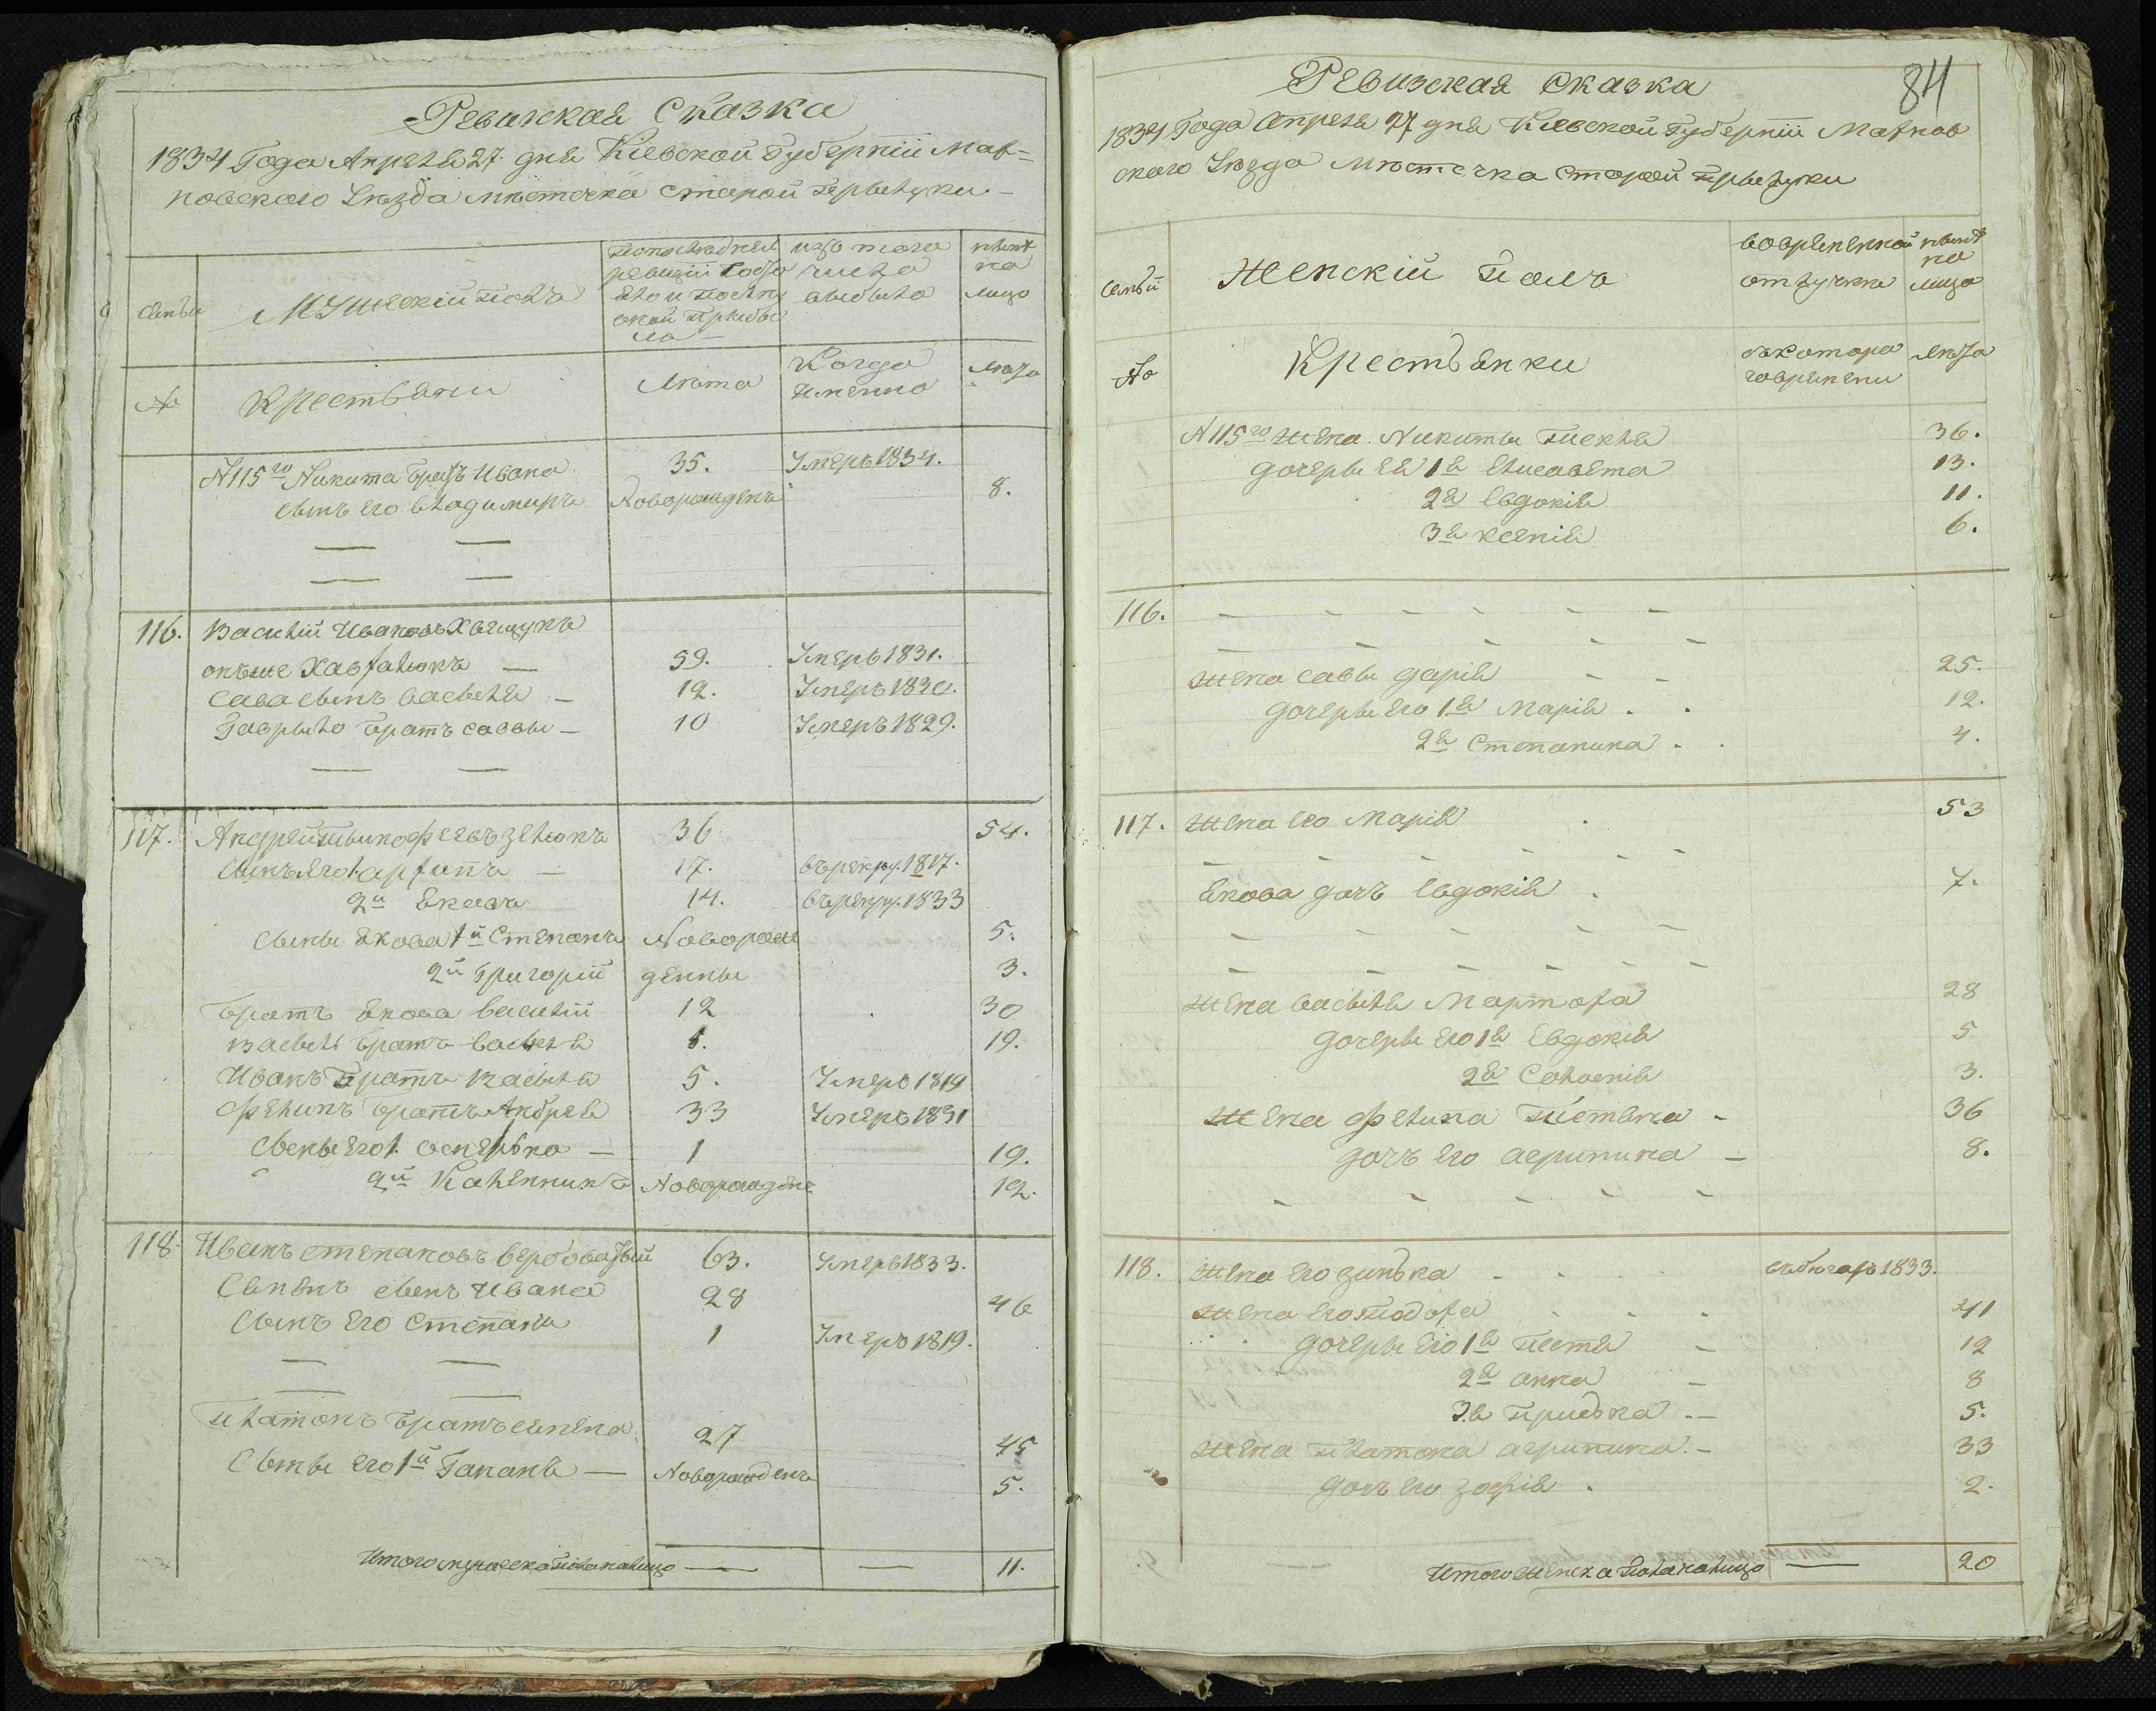 Ревизская Сказка
1834 Года Апреля 27 дня Кіевской Губерніи Мах-
новского Уезда местечка Старой Прылуки
Семьи
Мужескій полъ
По последней ревизіи состояло и после оной прибыло
изъ того числа выбыло
ныне на лицо
№
Крестьяни
Лета
Когда Именно
Лета
№115го Никита братъ Ивана 35. Умеръ 1834.
сынъ его Владимиръ Новорожденъ 8.
116. Василій Ивановъ
онъже 59. Умеръ 1831.
Сава сынъ Василя 12. Умеръ 1830.
Гаврыло братъ саввы 10 Умеръ 1829.
117. Андрей 36 54.
Сынъ его 1. 17. въ рекру. 1817.
2й Яковъ 14. въ рекру. 1833
Сыны Якова 1й Степанъ Новорож 5.
2й Григорій денны 3.
Братъ Якова Василій 12 30
Василь братъ Василя 5. 19.
Иванъ Братъ Василя 5. Умеръ 1819
Филипъ братъ Андрея 33 Умеръ 1831
Сыны его 1. 1 19.
2й Каленникъ Новорожденъ 12.
118. Иванъ Степановъ 63. Умеръ 1833.
сынъ Ивана 28 46
Сынъ его Степанъ 1 Умеръ 1819.
Платонъ братъ 27 45
Сыны его 1й Новорожденъ 5.
Итого мужеска пола налицо 11.
84
Ревизская Сказка
1834 Года Апреля 27 дня Кіевской Губерніи Махнов
ского Уезда Местечка Старой Прылуки
Семьи
Женскій Полъ
во временной отлучки
ныне на лицо
№
Крестьянки
съ котораго времени
Лета
№115го жена Никиты Текля 36.
дочеры ея 1я Елисавета 13.
2я Евдокія 11.
3я Ксенія 6.
116.
жена Савы Дарія 25.
дочеры его 1я Марія 12.
2я Степанида 4.
117. Жена его Марія 53
Якова дочъ Евдокія 7.
жена Василя Мартоха 28
дочеры его 1я Евдокія 5
2я 3.
Жена Филипа 36
дочъ его Агрипина 8.
118. Жена его Зинька 1833.
жена его Тодора 41
дочеры его 1я 12
2я Анна 8
3я 5.
жена Платона Агрипина 33
дочъ его Зофія 2.
Итого женска Пола налицо 20